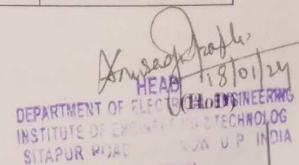 18/01/24
HEAD
(HoD)
DEPARTMENT OF ELECTRICAL ENGINEERING
INSTITUTE OF ENGINEERING & TECHNOLOG
SITAPUR ROAD U P INDIA